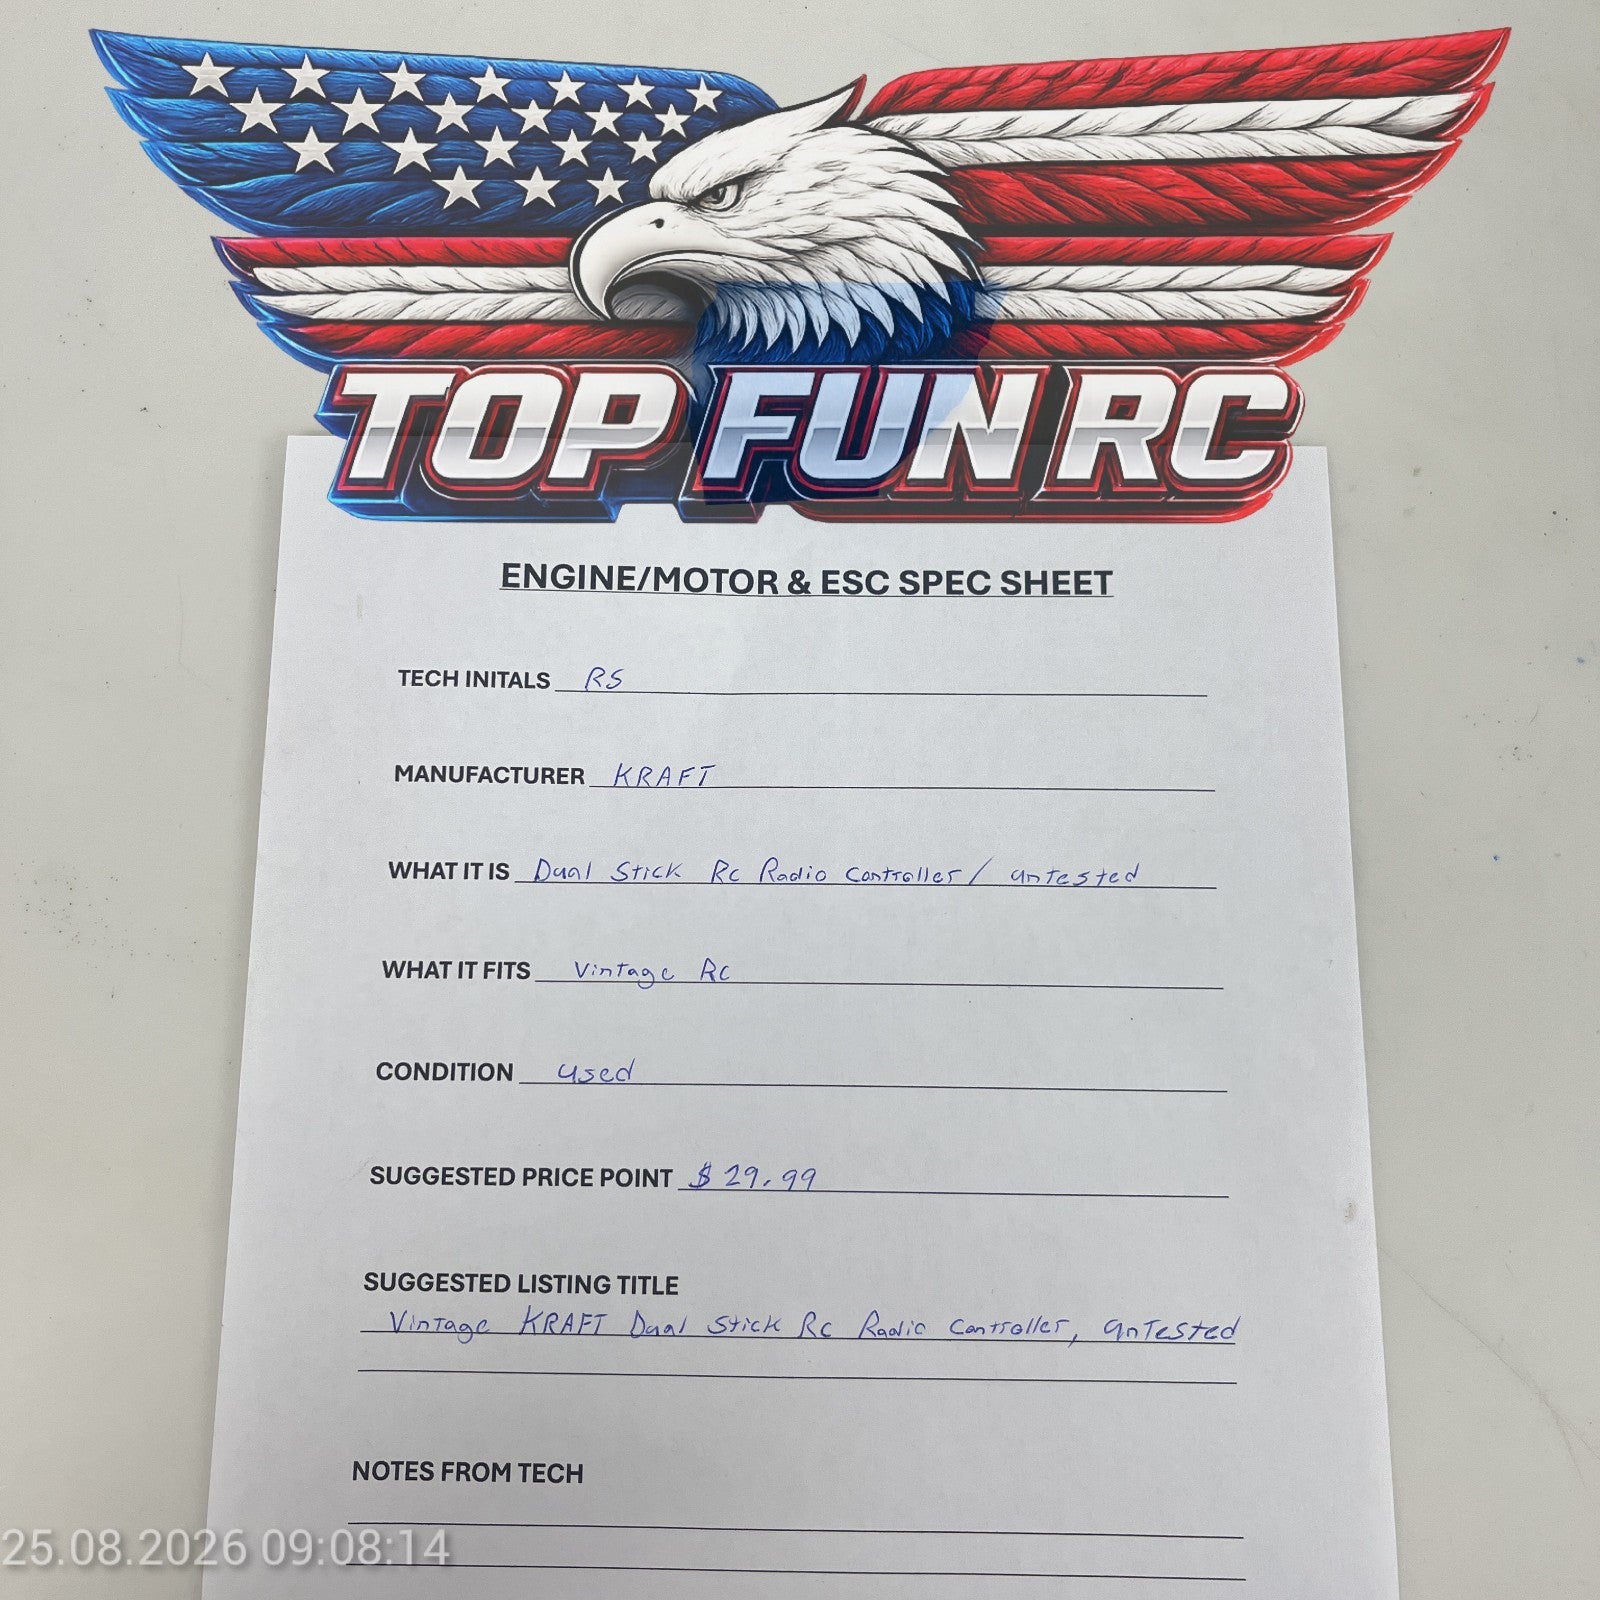 TOP FUN RC
ENGINE/MOTOR & ESC SPEC SHEET
TECH INITALS RS
MANUFACTURER KRAFT
WHAT IT IS Dual Stick Rc Radio Controller / untested
WHAT IT FITS Vintage Rc
CONDITION used
SUGGESTED PRICE POINT $ 29.99
SUGGESTED LISTING TITLE
Vintage KRAFT Dual Stick Rc Radio Controller, unTested
NOTES FROM TECH
25.08.2026 09:08:14